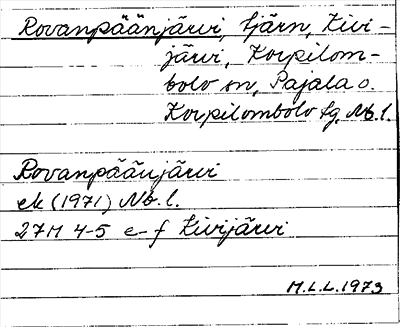 Rovanpäänjärvi, tjärn, Kivi-
järvi, Korpilom-
bolo sn, Pajala o.
Korpilombolo tg, Nb. l.
Rovanpäänjärvi
ek (1971) Nb. l.
27M 4-5 e-f Kivijärvi
M.L.L. 1973